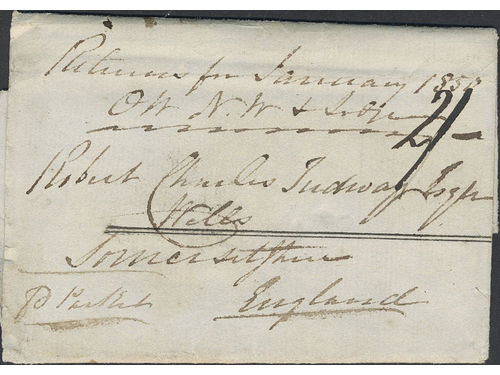 Returns for January 1850
O W N.W &
2/-
Robert Charles Tudway Esqr
Wells
Somersetshire
P Packet
England